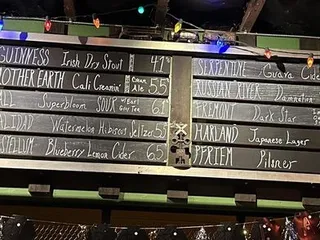 GUINNESS Irish Dry Stout 4.1
MOTHER EARTH Cali Creamin' Cream Ale 5.5
Superbloom SOUR w/ Earl Grey Tea 6.1
Watermelon Hibiscus Seltzer 5.5
STELLUM Blueberry Lemon Cider 6.5
SERPENTINE Guava Cider
RUSSIAN RIVER Damnation
FREMONT Dark Star
HARLAND Japanese Lager
PERIEM Pilsner